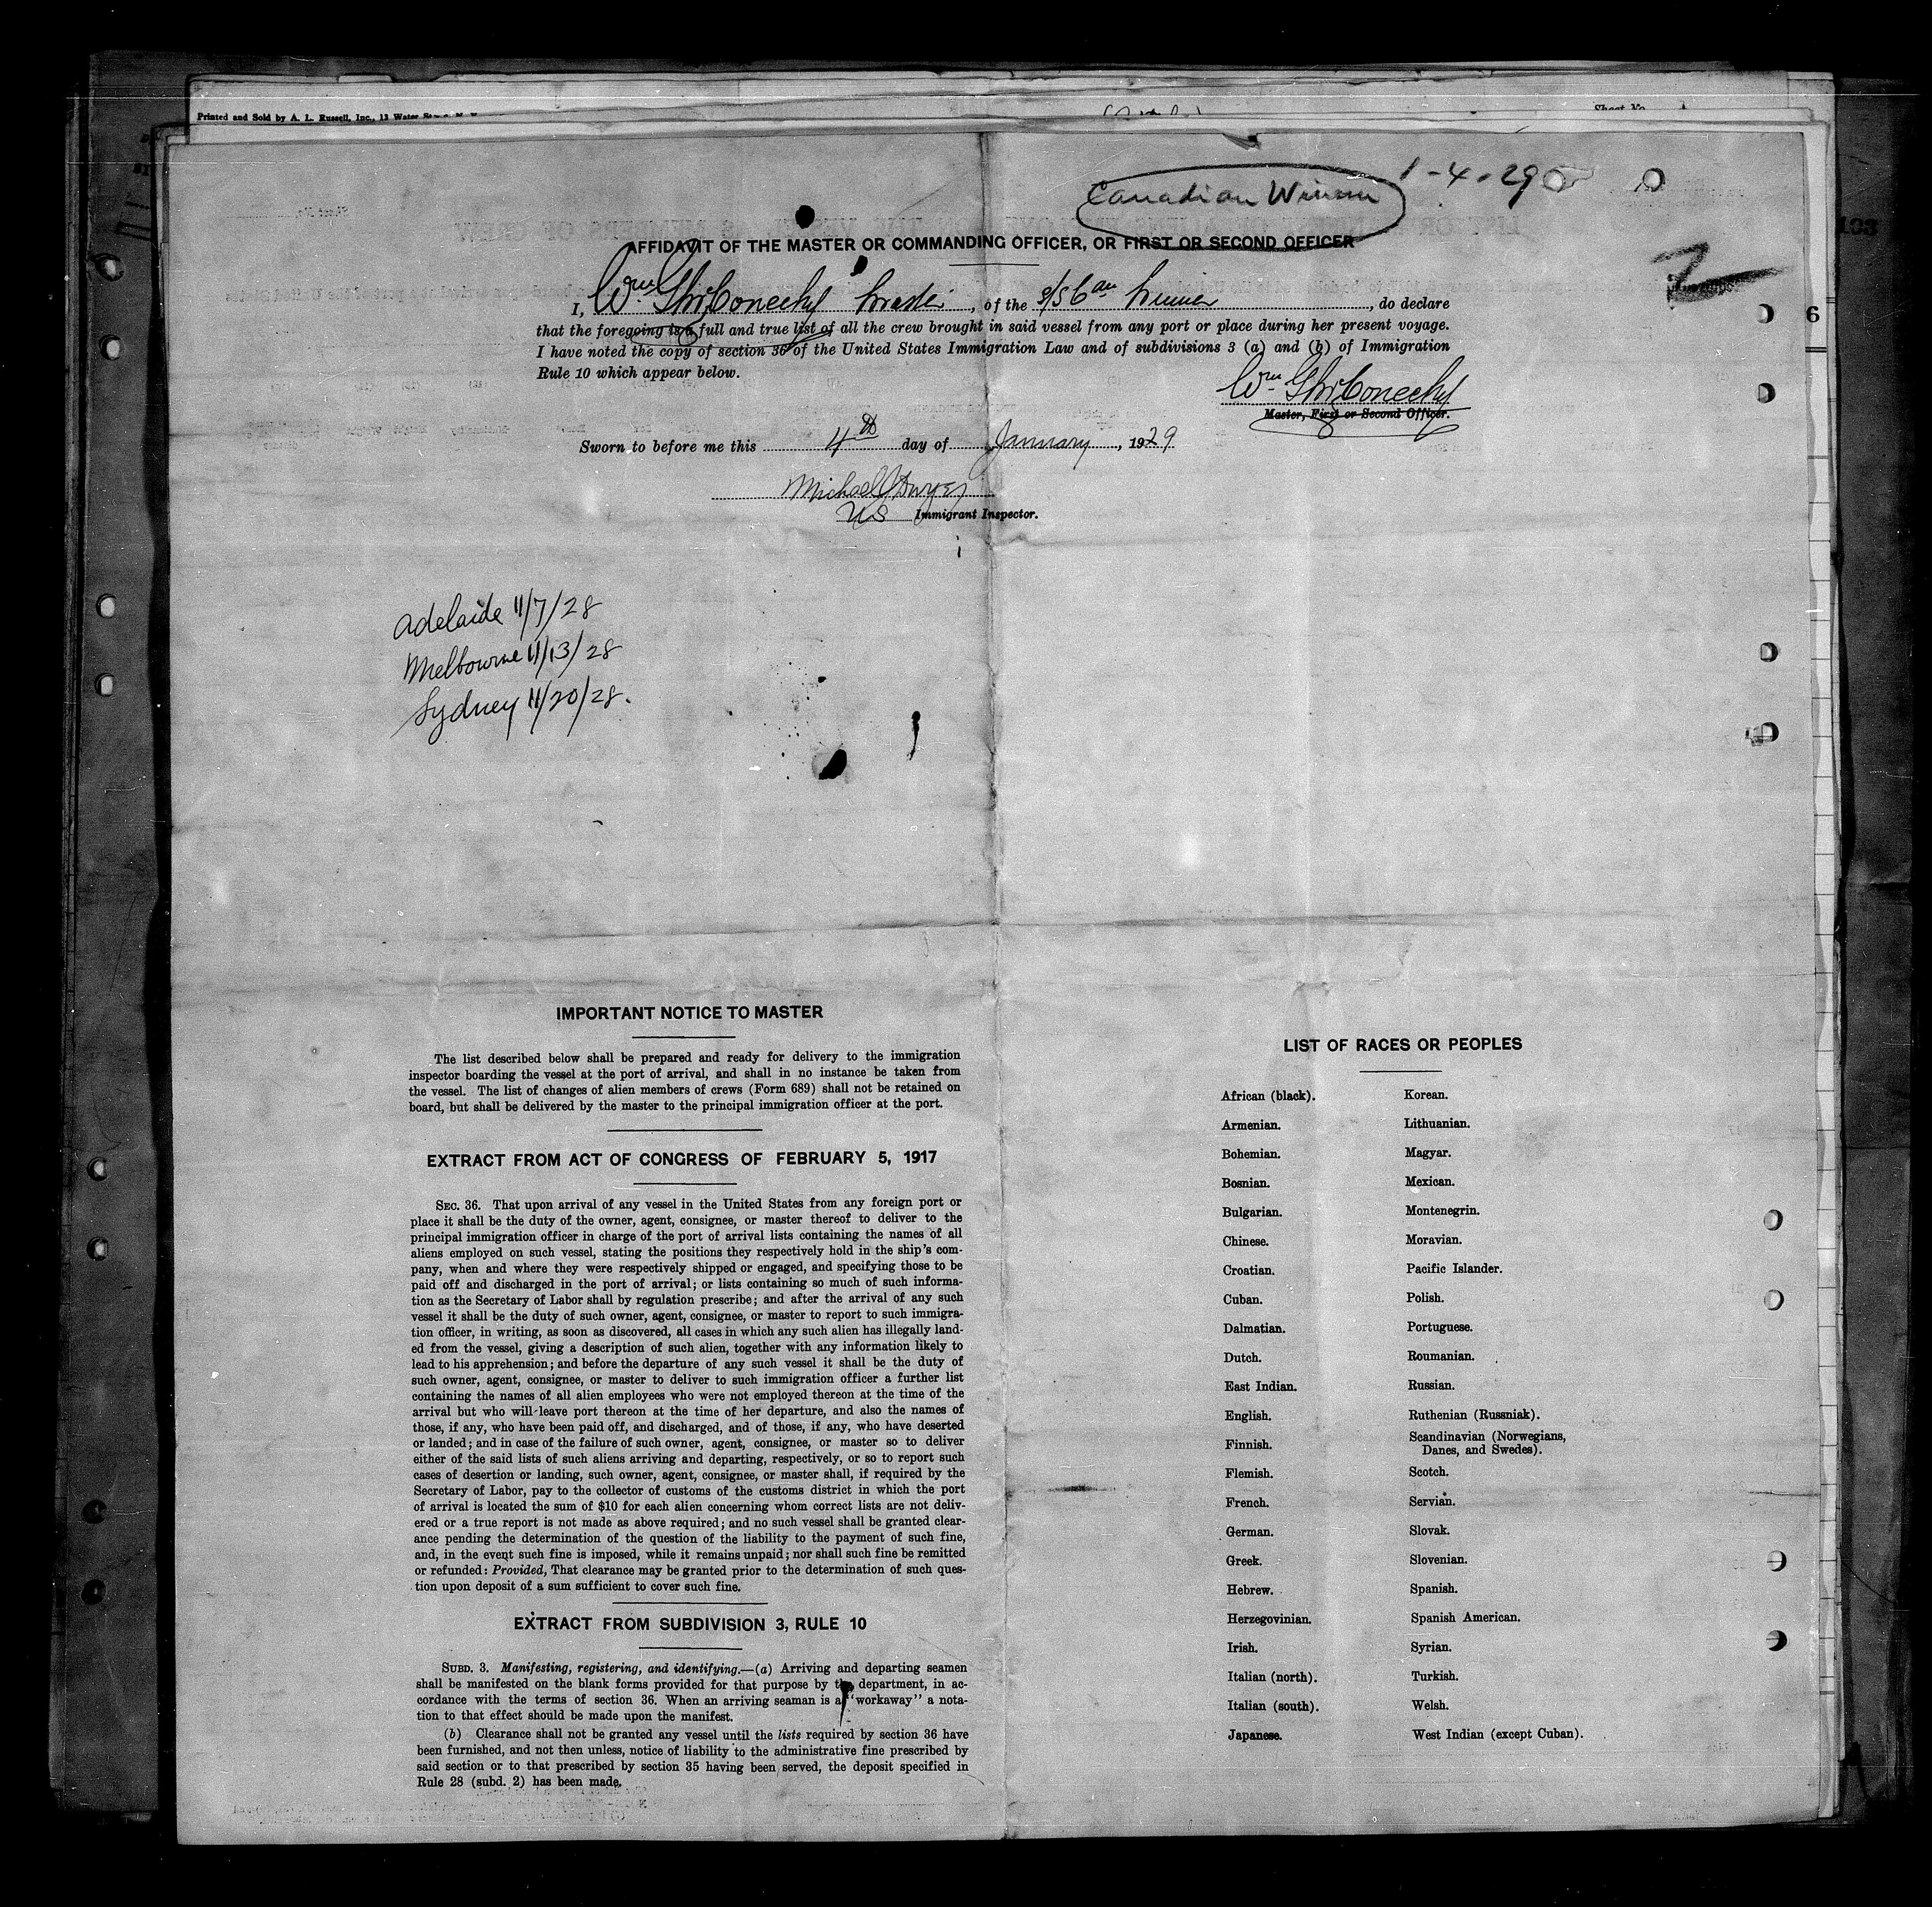 Printed and Sold by A. L. Russell, Inc., 13 Water
Sheet No.
1-4-29
Canadian
2
103
6
AFFIDAVIT OF THE MASTER OR COMMANDING OFFICER, OR FIRST OR SECOND OFFICER
I, Wm, of the S/S, do declare
that the foregoing is a full and true list of all the crew brought in said vessel from any port or place during her present voyage.
I have noted the copy of section 36 of the United States Immigration Law and of subdivisions 3 (a) and (b) of Immigration
Rule 10 which appear below.
Wm
Master, First or Second Officer.
Sworn to before me this 4th day of January, 1929
Michael Dwyer
US Immigrant Inspector.
Adelaide 11/7/28
Melbourne 11/13/28
Sydney 11/20/28.
IMPORTANT NOTICE TO MASTER
The list described below shall be prepared and ready for delivery to the immigration
inspector boarding the vessel at the port of arrival, and shall in no instance be taken from
the vessel. The list of changes of alien members of crews (Form 689) shall not be retained on
board, but shall be delivered by the master to the principal immigration officer at the port.
EXTRACT FROM ACT OF CONGRESS OF FEBRUARY 5, 1917
SEC. 36. That upon arrival of any vessel in the United States from any foreign port or
place it shall be the duty of the owner, agent, consignee, or master thereof to deliver to the
principal immigration officer in charge of the port of arrival lists containing the names of all
aliens employed on such vessel, stating the positions they respectively hold in the ship's com-
pany, when and where they were respectively shipped or engaged, and specifying those to be
paid off and discharged in the port of arrival; or lists containing so much of such informa-
tion as the Secretary of Labor shall by regulation prescribe; and after the arrival of any such
vessel it shall be the duty of such owner, agent, consignee, or master to report to such immigra-
tion officer, in writing, as soon as discovered, all cases in which any such alien has illegally land-
ed from the vessel, giving a description of such alien, together with any information likely to
lead to his apprehension; and before the departure of any such vessel it shall be the duty of
such owner, agent, consignee, or master to deliver to such immigration officer a further list
containing the names of all alien employees who were not employed thereon at the time of the
arrival but who will leave port thereon at the time of her departure, and also the names of
those, if any, who have been paid off, and discharged, and of those, if any, who have deserted
or landed; and in case of the failure of such owner, agent, consignee, or master so to deliver
either of the said lists of such aliens arriving and departing, respectively, or so to report such
cases of desertion or landing, such owner, agent, consignee, or master shall, if required by the
Secretary of Labor, pay to the collector of customs of the customs district in which the port
of arrival is located the sum of $10 for each alien concerning whom correct lists are not deliv-
ered or a true report is not made as above required; and no such vessel shall be granted clear-
ance pending the determination of the question of the liability to the payment of such fine,
and, in the event such fine is imposed, while it remains unpaid; nor shall such fine be remitted
or refunded: Provided, That clearance may be granted prior to the determination of such ques-
tion upon deposit of a sum sufficient to cover such fine.
EXTRACT FROM SUBDIVISION 3, RULE 10
SUBD. 3. Manifesting, registering, and identifying.—(a) Arriving and departing seamen
shall be manifested on the blank forms provided for that purpose by the department, in ac-
cordance with the terms of section 36. When an arriving seaman is a "workaway" a nota-
tion to that effect should be made upon the manifest.
(b) Clearance shall not be granted any vessel until the lists required by section 36 have
been furnished, and not then unless, notice of liability to the administrative fine prescribed by
said section or to that prescribed by section 35 having been served, the deposit specified in
Rule 28 (subd. 2) has been made.
LIST OF RACES OR PEOPLES
African (black).
Armenian.
Bohemian.
Bosnian.
Bulgarian.
Chinese.
Croatian.
Cuban.
Dalmatian.
Dutch.
East Indian.
English.
Finnish.
Flemish.
French.
German.
Greek.
Hebrew.
Herzegovinian.
Irish.
Italian (north).
Italian (south).
Japanese.
Korean.
Lithuanian.
Magyar.
Mexican.
Montenegrin.
Moravian.
Pacific Islander.
Polish.
Portuguese.
Roumanian.
Russian.
Ruthenian (Russniak).
Scandinavian (Norwegians,
Danes, and Swedes).
Scotch.
Servian.
Slovak.
Slovenian.
Spanish.
Spanish American.
Syrian.
Turkish.
Welsh.
West Indian (except Cuban).